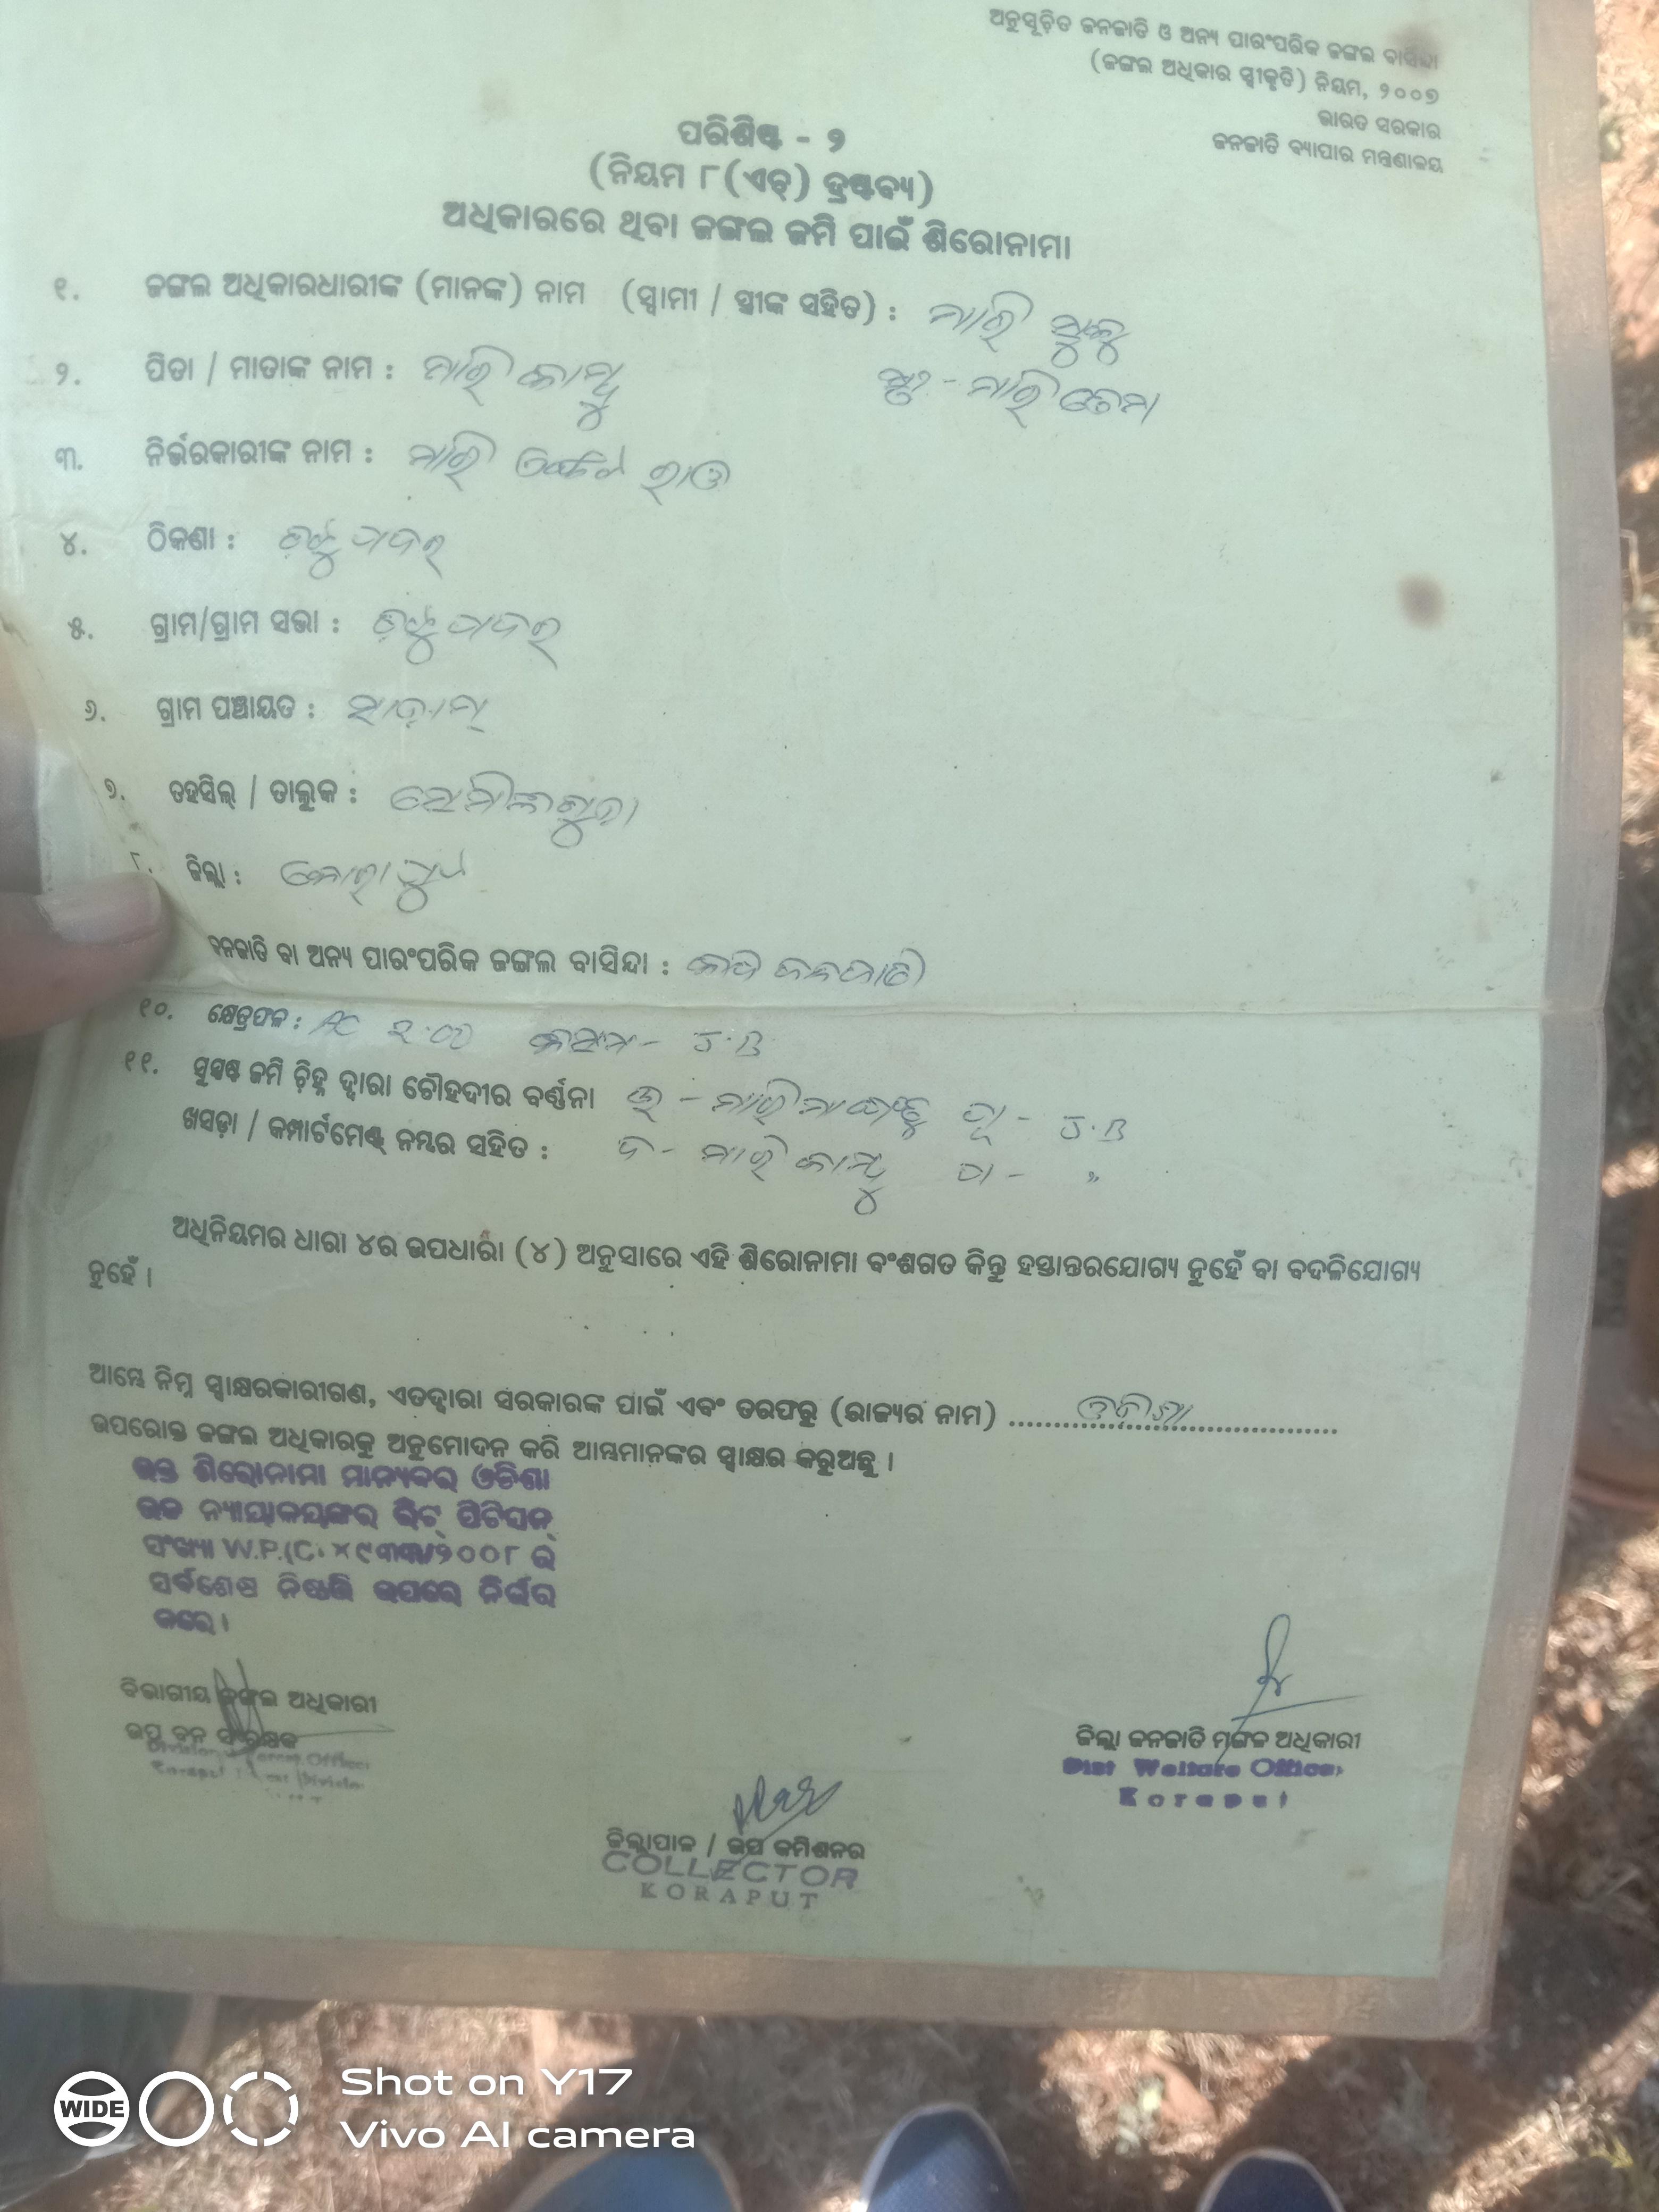 ଅନୁସୂଚିତ ଜନଜାତି ଓ ଅନ୍ୟ ପାରଂପରିକ ଜଙ୍ଗଲ ବାସିନ୍ଦା
(ଜଙ୍ଗଲ ଅଧିକାର ସ୍ୱୀକୃତି) ନିୟମ, ୨୦୦୭
ଭାରତ ସରକାର
ଜନଜାତି ବ୍ୟାପାର ମନ୍ତ୍ରଣାଳୟ
ପରିଶିଷ୍ଟ - ୨
(ନିୟମ ୮(ଏଚ୍) ଦ୍ରଷ୍ଟବ୍ୟ)
ଅଧିକାରରେ ଥିବା ଜଙ୍ଗଲ ଜମି ପାଇଁ ଶିରୋନାମା
୧. ଜଙ୍ଗଲ ଅଧିକାରଧାରୀଙ୍କ (ମାନଙ୍କ) ନାମ (ସ୍ୱାମୀ / ସ୍ତ୍ରୀଙ୍କ ସହିତ) : ମାରି
୨. ପିତା / ମାତାଙ୍କ ନାମ : ମାରି ମାରି
୩. ନିର୍ଭରକାରୀଙ୍କ ନାମ : ମାରି ରାଓ
୪. ଠିକଣା :
୫. ଗ୍ରାମ/ଗ୍ରାମ ସଭା :
୬. ଗ୍ରାମ ପଞ୍ଚାୟତ :
୭. ତହସିଲ୍ / ତାଲୁକ :
୮. ଜିଲ୍ଲା : କୋରାପୁଟ
ଜନଜାତି ବା ଅନ୍ୟ ପାରଂପରିକ ଜଙ୍ଗଲ ବାସିନ୍ଦା : ଜନଜାତି
୧୦. କ୍ଷେତ୍ରଫଳ : AC ୨.୦୦ କିସମ - J.B
୧୧. ସୁସ୍ପଷ୍ଟ ଜମି ଚିହ୍ନ ଦ୍ୱାରା ଚୌହଦୀର ବର୍ଣ୍ଣନା ଉ - ମାରି ପୂ - J.B
ଖସଡ଼ା / କମ୍ପାର୍ଟମେଣ୍ଟ୍ ନମ୍ବର ସହିତ : ଦ - ମାରି ପ - "
ଅଧିନିୟମର ଧାରା ୪ର ଉପଧାରା (୪) ଅନୁସାରେ ଏହି ଶିରୋନାମା ବଂଶଗତ କିନ୍ତୁ ହସ୍ତାନ୍ତରଯୋଗ୍ୟ ନୁହେଁ ବା ବଦଳିଯୋଗ୍ୟ
ନୁହେଁ ।
ଆମ୍ଭେ ନିମ୍ନ ସ୍ୱାକ୍ଷରକାରୀଗଣ, ଏତଦ୍ୱାରା ସରକାରଙ୍କ ପାଇଁ ଏବଂ ତରଫରୁ (ରାଜ୍ୟର ନାମ) ଓଡିଶା
ଉପରୋକ୍ତ ଜଙ୍ଗଲ ଅଧିକାରକୁ ଅନୁମୋଦନ କରି ଆମ୍ଭମାନଙ୍କର ସ୍ୱାକ୍ଷର କରୁଅଛୁ ।
ଉକ୍ତ ଶିରୋନାମା ମାନ୍ୟବର ଓଡିଶା
ଉଚ୍ଚ ନ୍ୟାୟାଳୟଙ୍କର ରିଟ୍ ପିଟିସନ୍
ସଂଖ୍ୟା W.P.(C. /୨୦୦୮ ର
ସର୍ବଶେଷ ନିଷ୍ପତ୍ତି ଉପରେ ନିର୍ଭର
କରେ ।
ବିଭାଗୀୟ ଜଙ୍ଗଲ ଅଧିକାରୀ
ଉପ ବନ ସଂରକ୍ଷକ
Divisional Forest Officer
Koraput Forest Division
ଜିଲ୍ଲା ଜନଜାତି ମଙ୍ଗଳ ଅଧିକାରୀ
Dist Welfare Officer
Koraput
ଜିଲ୍ଲାପାଳ / ଉପ କମିଶନର
COLLECTOR
KORAPUT
WIDE
Shot on Y17
Vivo AI camera